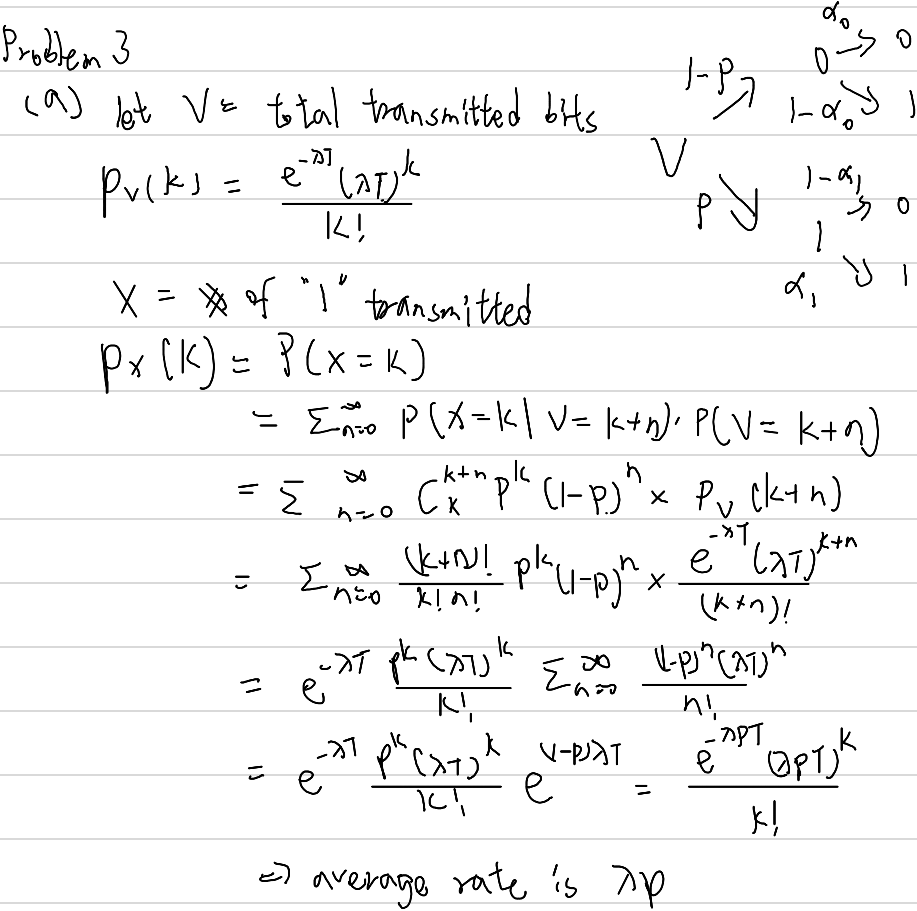 Problem 3
(a) let V = total transmitted bits
P_V(k) = e^{-λT} (λT)^k / k!
X = # of "1" transmitted
P_X(k) = P(X = k)
= Σ_{n=0}^∞ P(X=k | V = k+n) · P(V = k+n)
= Σ_{n=0}^∞ C_k^{k+n} P^k (1-p)^n × P_V(k+n)
= Σ_{n=0}^∞ (k+n)! / k! n! p^k (1-p)^n × e^{-λT} (λT)^{k+n} / (k+n)!
= e^{-λT} p^k (λT)^k / k! Σ_{n=0}^∞ (1-p)^n (λT)^n / n!
= e^{-λT} p^k (λT)^k / k! e^{(1-p)λT} = e^{-λpT} (λpT)^k / k!
⇒ average rate is λp
α₀
0 → 0
1-p ↗
1-α₀ ↘ 1
V
p ↘
1-α₁ ↗ 0
1
α₁ ↘ 1